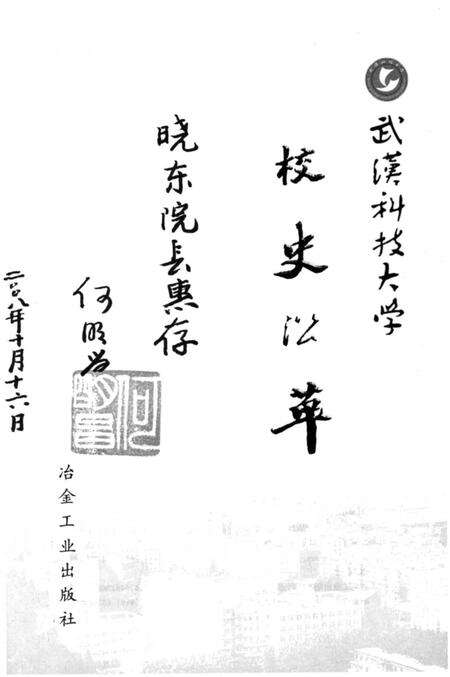 武漢科技大学
校史沿革
晓东院长惠存
何明昌
何明昌
二〇〇八年十月十六日
冶金工业出版社